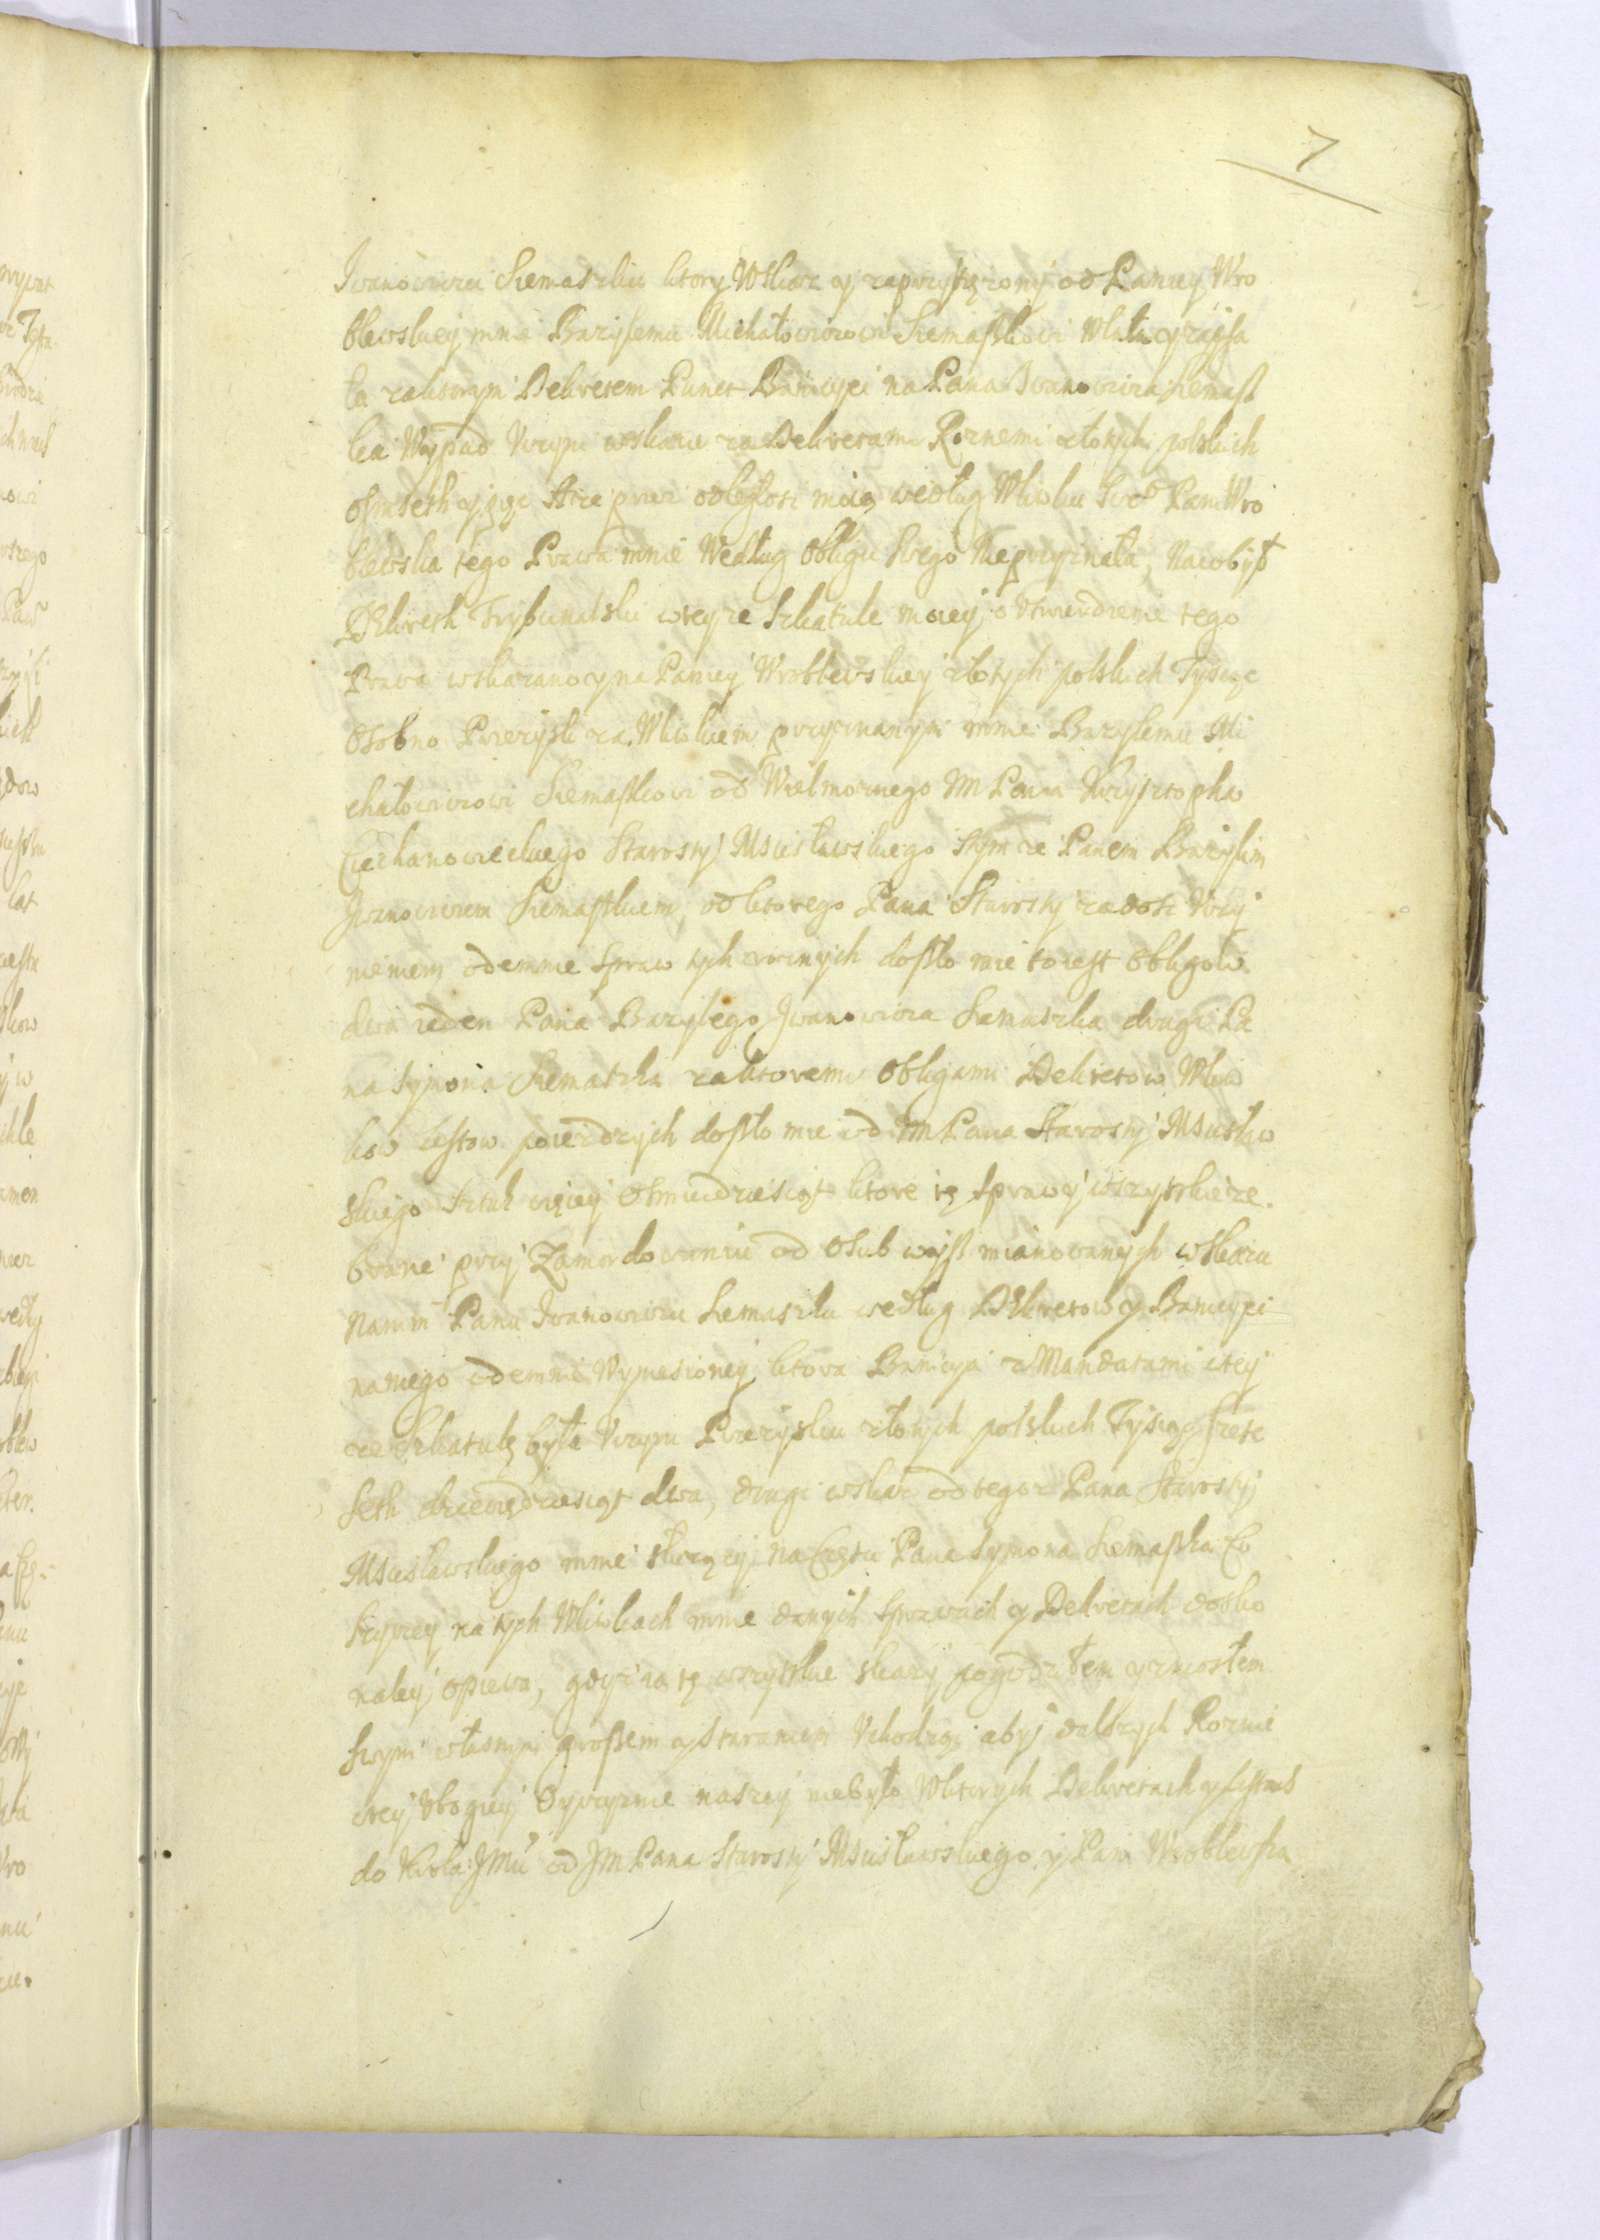 7
Iwanowiczu Siemaszku ktory Wskaz y zaprzysięzony od Paniey Wro
blewskiey mnie Bazylemu Michałowiczowi Siemaszkowi Wlała y zapisa
ła za ktorym Dekretem Punct Banicyei na Pana Iwanowicza Siemasz
ka Wypadł Vczyni wskazu za Dekretami Roznemi złotych polskich
osmseth y pięc A ze przez odległosc moię według Wliwku Swe° Pani Wro
blewska tego Prawa mnie Według Obligu Swego Nieprzyznała, Na co był
Dekreth Trybunalski w teyze Szkatule moiey o vtwierdzenie tego
Prawa wskazano y na Paniey Wroblewskiey złotych polskich Tysiąc
Osobno Przezysk za Wliwkiem przyznanym mnie Bazylemu Mi
chałowiczowi Siemaszkowi od Wielmoznego IM Pana Krzysztopha
Ciechanowieckiego Starosty Mscisławskiego s tymze Panem Bazylim
Iwanowiczem Siemaszkiem, od ktorego Pana Starosty za dosc Vczy
nieniem odemnie Spraw tych roznych doszło mie to iest Obligow
dwa ieden Pana Bazylego Iwanowicza Siemaszka drugi Pa
na Symona Siemaszka za ktoremi Obligami Dekretow Wliw
kow Listow poiezdzych doszło mie od IM Pana Starosty Mscisław
skiego Sztuk więcey Osmiudziesiąt ktore te Sprawy wszytskie ze
brane przy Zamordowaniu od Osub wysz mianowanych w Skazu
na nim Panu Iwanowiczu Siemaszku według Dekretow y Banicyei
na niego odemnie Wyniesioney ktora Banicyia z Mandatami w tey
ze Szkatule była Vczyni Przezysku złotych polskich Tysiąc szesc
seth dziewiędziesiąt dwa, drugi wskaz od tegoz Pana Starosty
Mscisławskiego mnie słuzący na Częsci Pana Symona Siemaszka Co
szyrzey na tych Wliwkach mnie danych Sprawach y Dekretach dosko
naley opiewa, gdyz za te wszytskie skazy pogodziłem y zniosłem
swym własnym groszem y Staraniem Vchodząc aby dalszych Roznic
w tey vbogiey Oyczyznie naszey niebyło W ktorych Dekretach y Listach
do Krola JMci od JM Pana Starosty Mscisławskiego y Pani Wroblewska